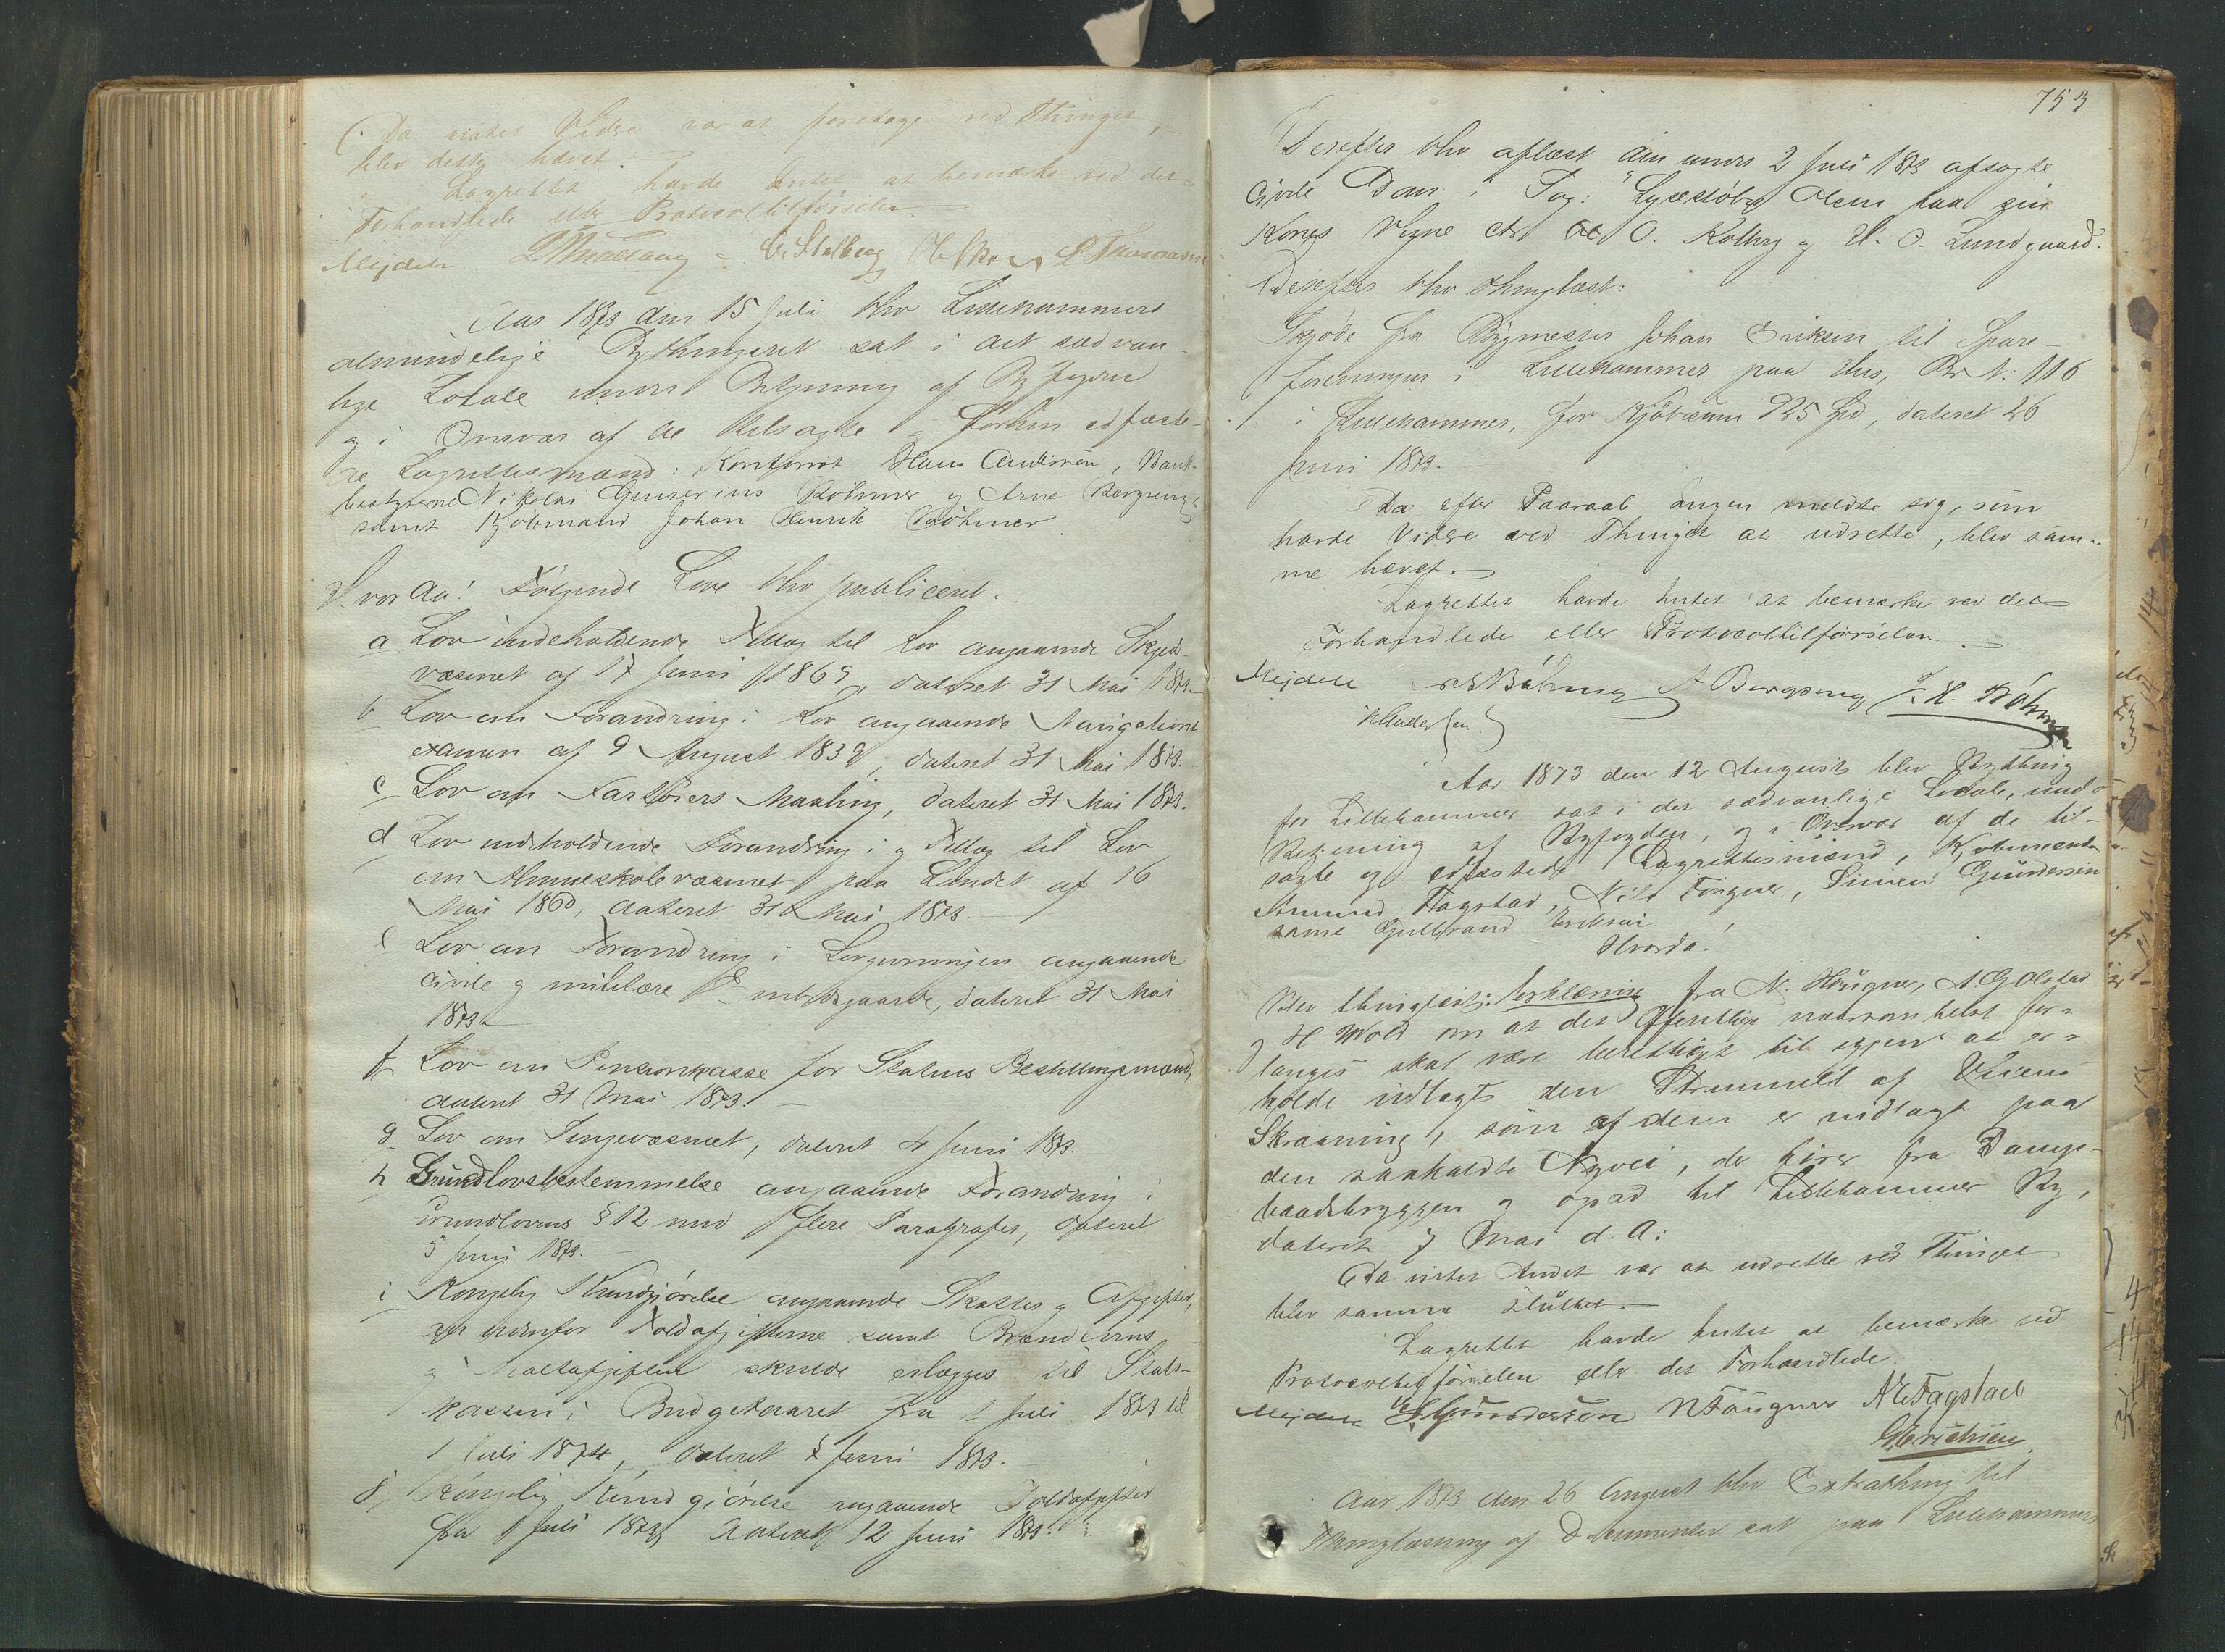 Da intet Videre var at foretage ved Thinget,
blev dette hævet.
Lagrettet havde Intet at bemærke ved det
Forhandlede eller Protocoltilførselen.
Mejdell C. Stalberg L Thomassen
Aar 1873 den 15 Juli blev Lillehammers
almindelige Bythingsret sat i det sædvan-
lige Lokale under Betjening af Byfogden
og i Overvær af de tilsagte og førhen edfæste-
de Lagrettesmænd: Kontorist Hans Andersen, Bank-
bestyrerne Nikolai Gunerius Bøhmer og Arne Bergseng
samt Kjøbmand Johan Henrik Bøhmer.
Hvor da! Følgende Love blev publiceret.
a Lov indeholdende Tillæg til Lov angaaende Skyds-
væsenet af 17 Juni 1869, dateret 31 Mai 1873.
b Lov om Forandring i Lov angaaende Navigations
examen af 9 August 1839, dateret 31 Mai 1873.
c Lov om Fartøiers Maaling, dateret 31 Mai 1873.
d Lov indeholdende Forandring i og Tillæg til Lov
om Almueskolevæsenet paa Landet af 16
Mai 1860, dateret 31 Mai 1873.
e Lov om Forandring i Lovgivningen angaaende
civile og militære Embedsgaarde, dateret 31 Mai
1873.
f Lov om Pensionskasse for Statens Bestillingsmænd,
dateret 31 Mai 1873.
g Lov om Pengevæsenet, dateret 4 Juni 1873.
h Grundlovsbestemmelse angaaende Forandring i
Grundlovens § 12 med flere Paragrafer, dateret
5 Juni 1873.
i Kongelig Kundgjørelse angaaende Skatter og Afgifter,
der udenfor Toldafgifterne samt Brændevins
og Maltafgiften skulde erlægges til Stats-
kassen i Budgetaaret fra 1 Juli 1873 til
1 Juli 1874, dateret 7 Juni 1873.
j, Kongelig Kundgjørelse angaaende Toldafgifter
fra 1 Juli 1873, dateret 12 Juni 1873.
753
Derefter blev aflæst den under 2 Juli 1873 afsagte
civile Dom i Sag: Olsen paa sin
Kones Vegne ctr O. Kolberg og H. O. Lundgaard.
Derefter blev thinglæst:
Skjøde fra Bygmester Johan Eriksen til Spare-
foreningen i Lillehammer paa Hus, Br N: 116
i Lillehammer, for Kjøbesum 925 Spd, dateret 26
Juni 1873.
Da efter Paaraab Ingen meldte sig, som
havde Videre ved Thinget at udrette, blev sam-
me hævet.
Lagrettet havde Intet at bemærke ved det
Forhandlede eller Protocoltilførselen.
Mejdell N G Bøhmer A Bergseng J. H. Bøhmer
H Andersen
Aar 1873 den 12 August blev Bything
for Lillehammer sat i det sædvanlige Locale, under
Betjening af Byfogden, og i Overvær af de til-
sagte og edfæstede Lagrettesmænd, Kjøbmænd
Amund Fagstad, Nils Fougner, Simen Gundersen
samt Gulbrand Eriksen.
Hvorda!
Blev thinglæst: Erklæring fra N. Fougner, A. G. Olstad
og H Wold om at det Offentlige naarsomhelst for-
langes skal være berettiget til igjen at er-
holde indlagt den Strimmel af Veiens
Skraaning, som af dem er indlagt paa
den saakaldte Nyvei, der fører fra Damp-
baadsbryggen og opad til Lillehammer By,
dateret 7 Mai d. A:
Da intet Andet var at udrette ved Thinget
blev samme sluttet.
Lagrettet havde Intet at bemærke ved
Protocoltilførselen eller det Forhandlede.
Mejdell S Gundersen N Fougner A E Fagstad
G Erichsen
Aar 1873 den 26 August blev Extrathing til
Thinglæsning af Documenter sat paa Lillehammers